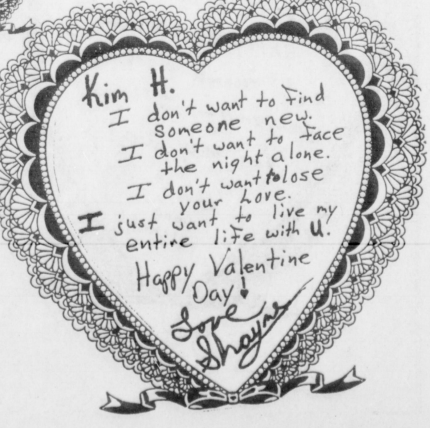 Kim H.
I don't want to find
someone new.
I don't want to face
the night alone.
I don't want to lose
your Love.
I just want to live my
entire life with U.
Happy Valentine
Day!
Love
Shayne